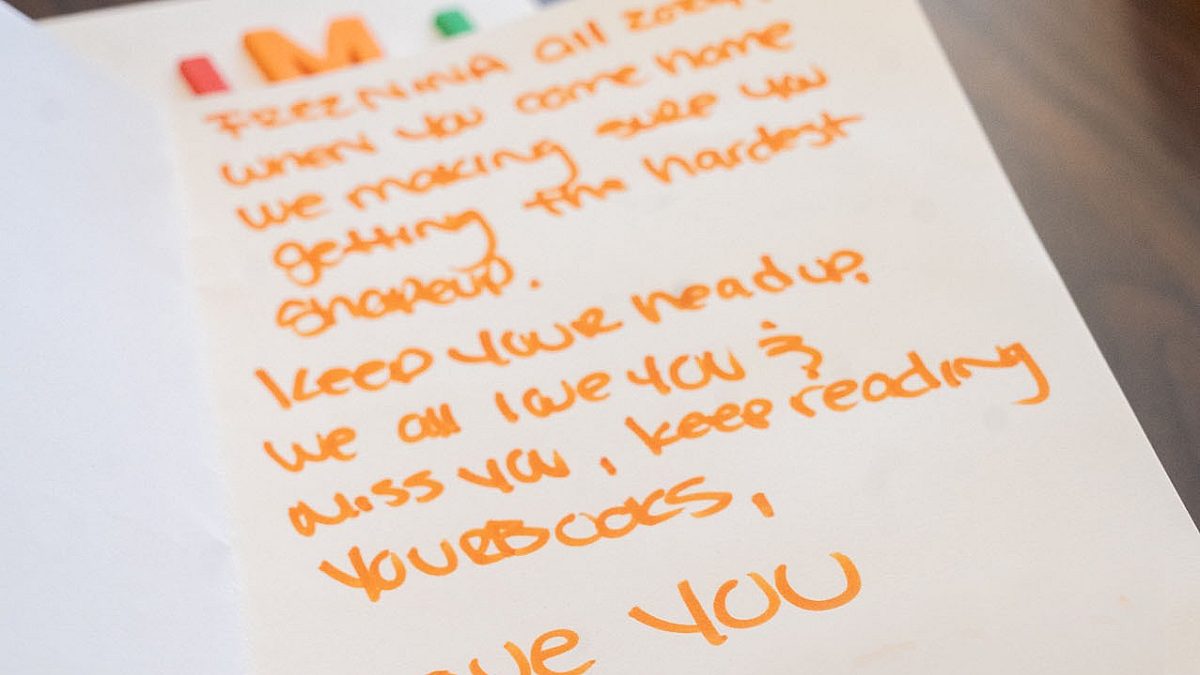 I M
FREE NINA all 2024!
when you come home
we making sure you
getting the hardest
shapeup.
Keep your head up.
we all love you &
miss you, keep reading
YOUR BOOKS,
YOU